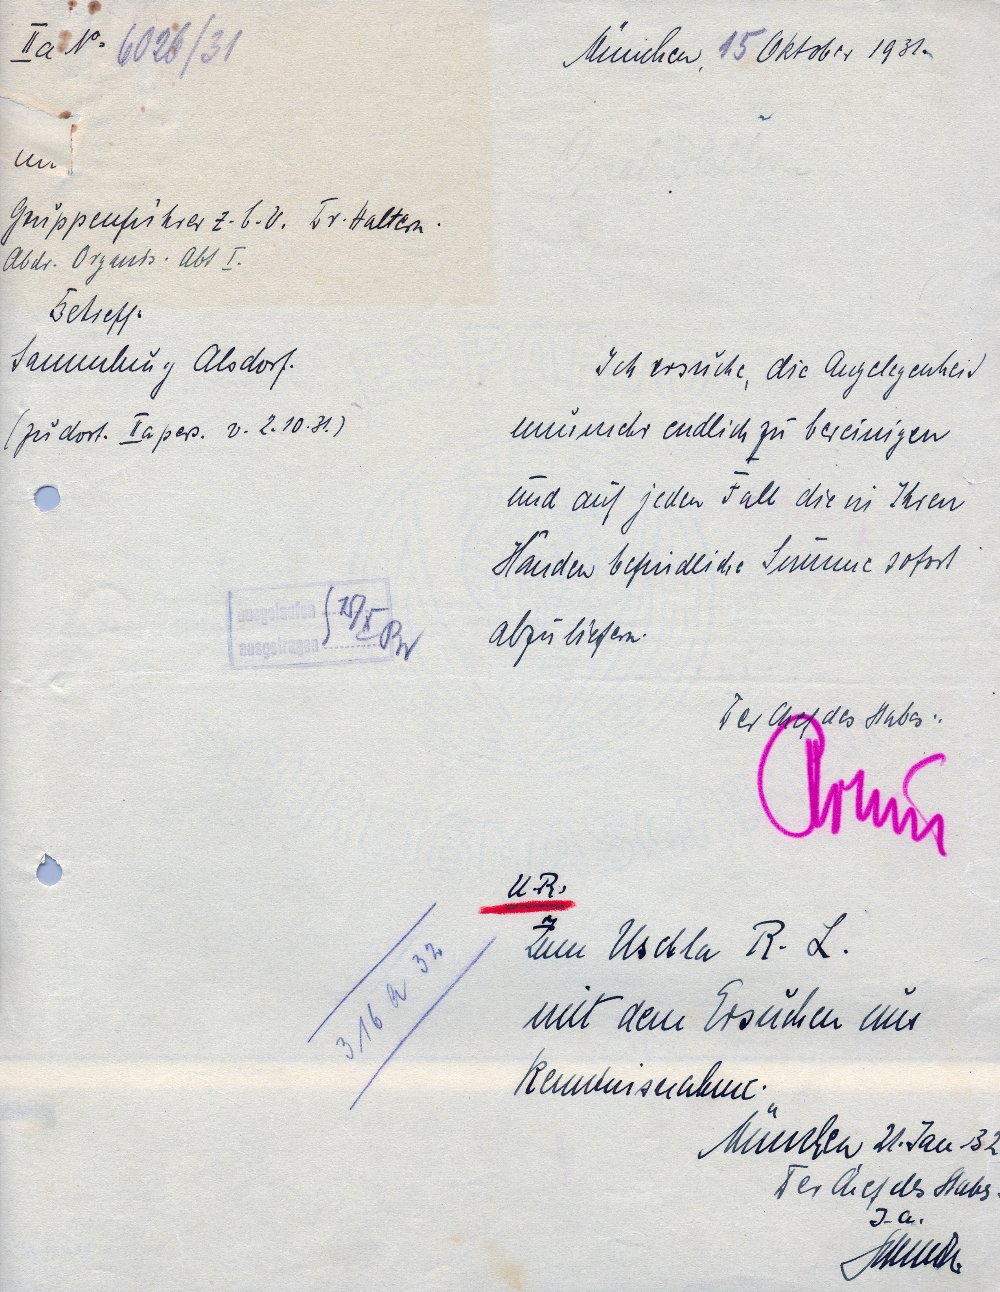 IIa No. 6026/31
München, 15 Oktober 1931.
An
Gruppenführer z.b.V. Dr. Haltern.
Abdr. Organis. Abt I.
Betreff.
Sammlung Alsdorf.
(zu dort. IIa pers. v. 2.10.31.)
Ich ersuche, die Angelegenheit
nunmehr endlich zu bereinigen
und auf jeden Fall die in Ihren
Händen befindliche Summe sofort
abzuliefern.
ausgelaufen
ausgetragen
Der Chef des Stabes:
Röhm
U.R.
Zum Uschla R.L.
mit dem Ersuchen um
Kenntnisnahme.
316 a 32
München 21. Jan 32
Der Chef des Stabes.
I.A.